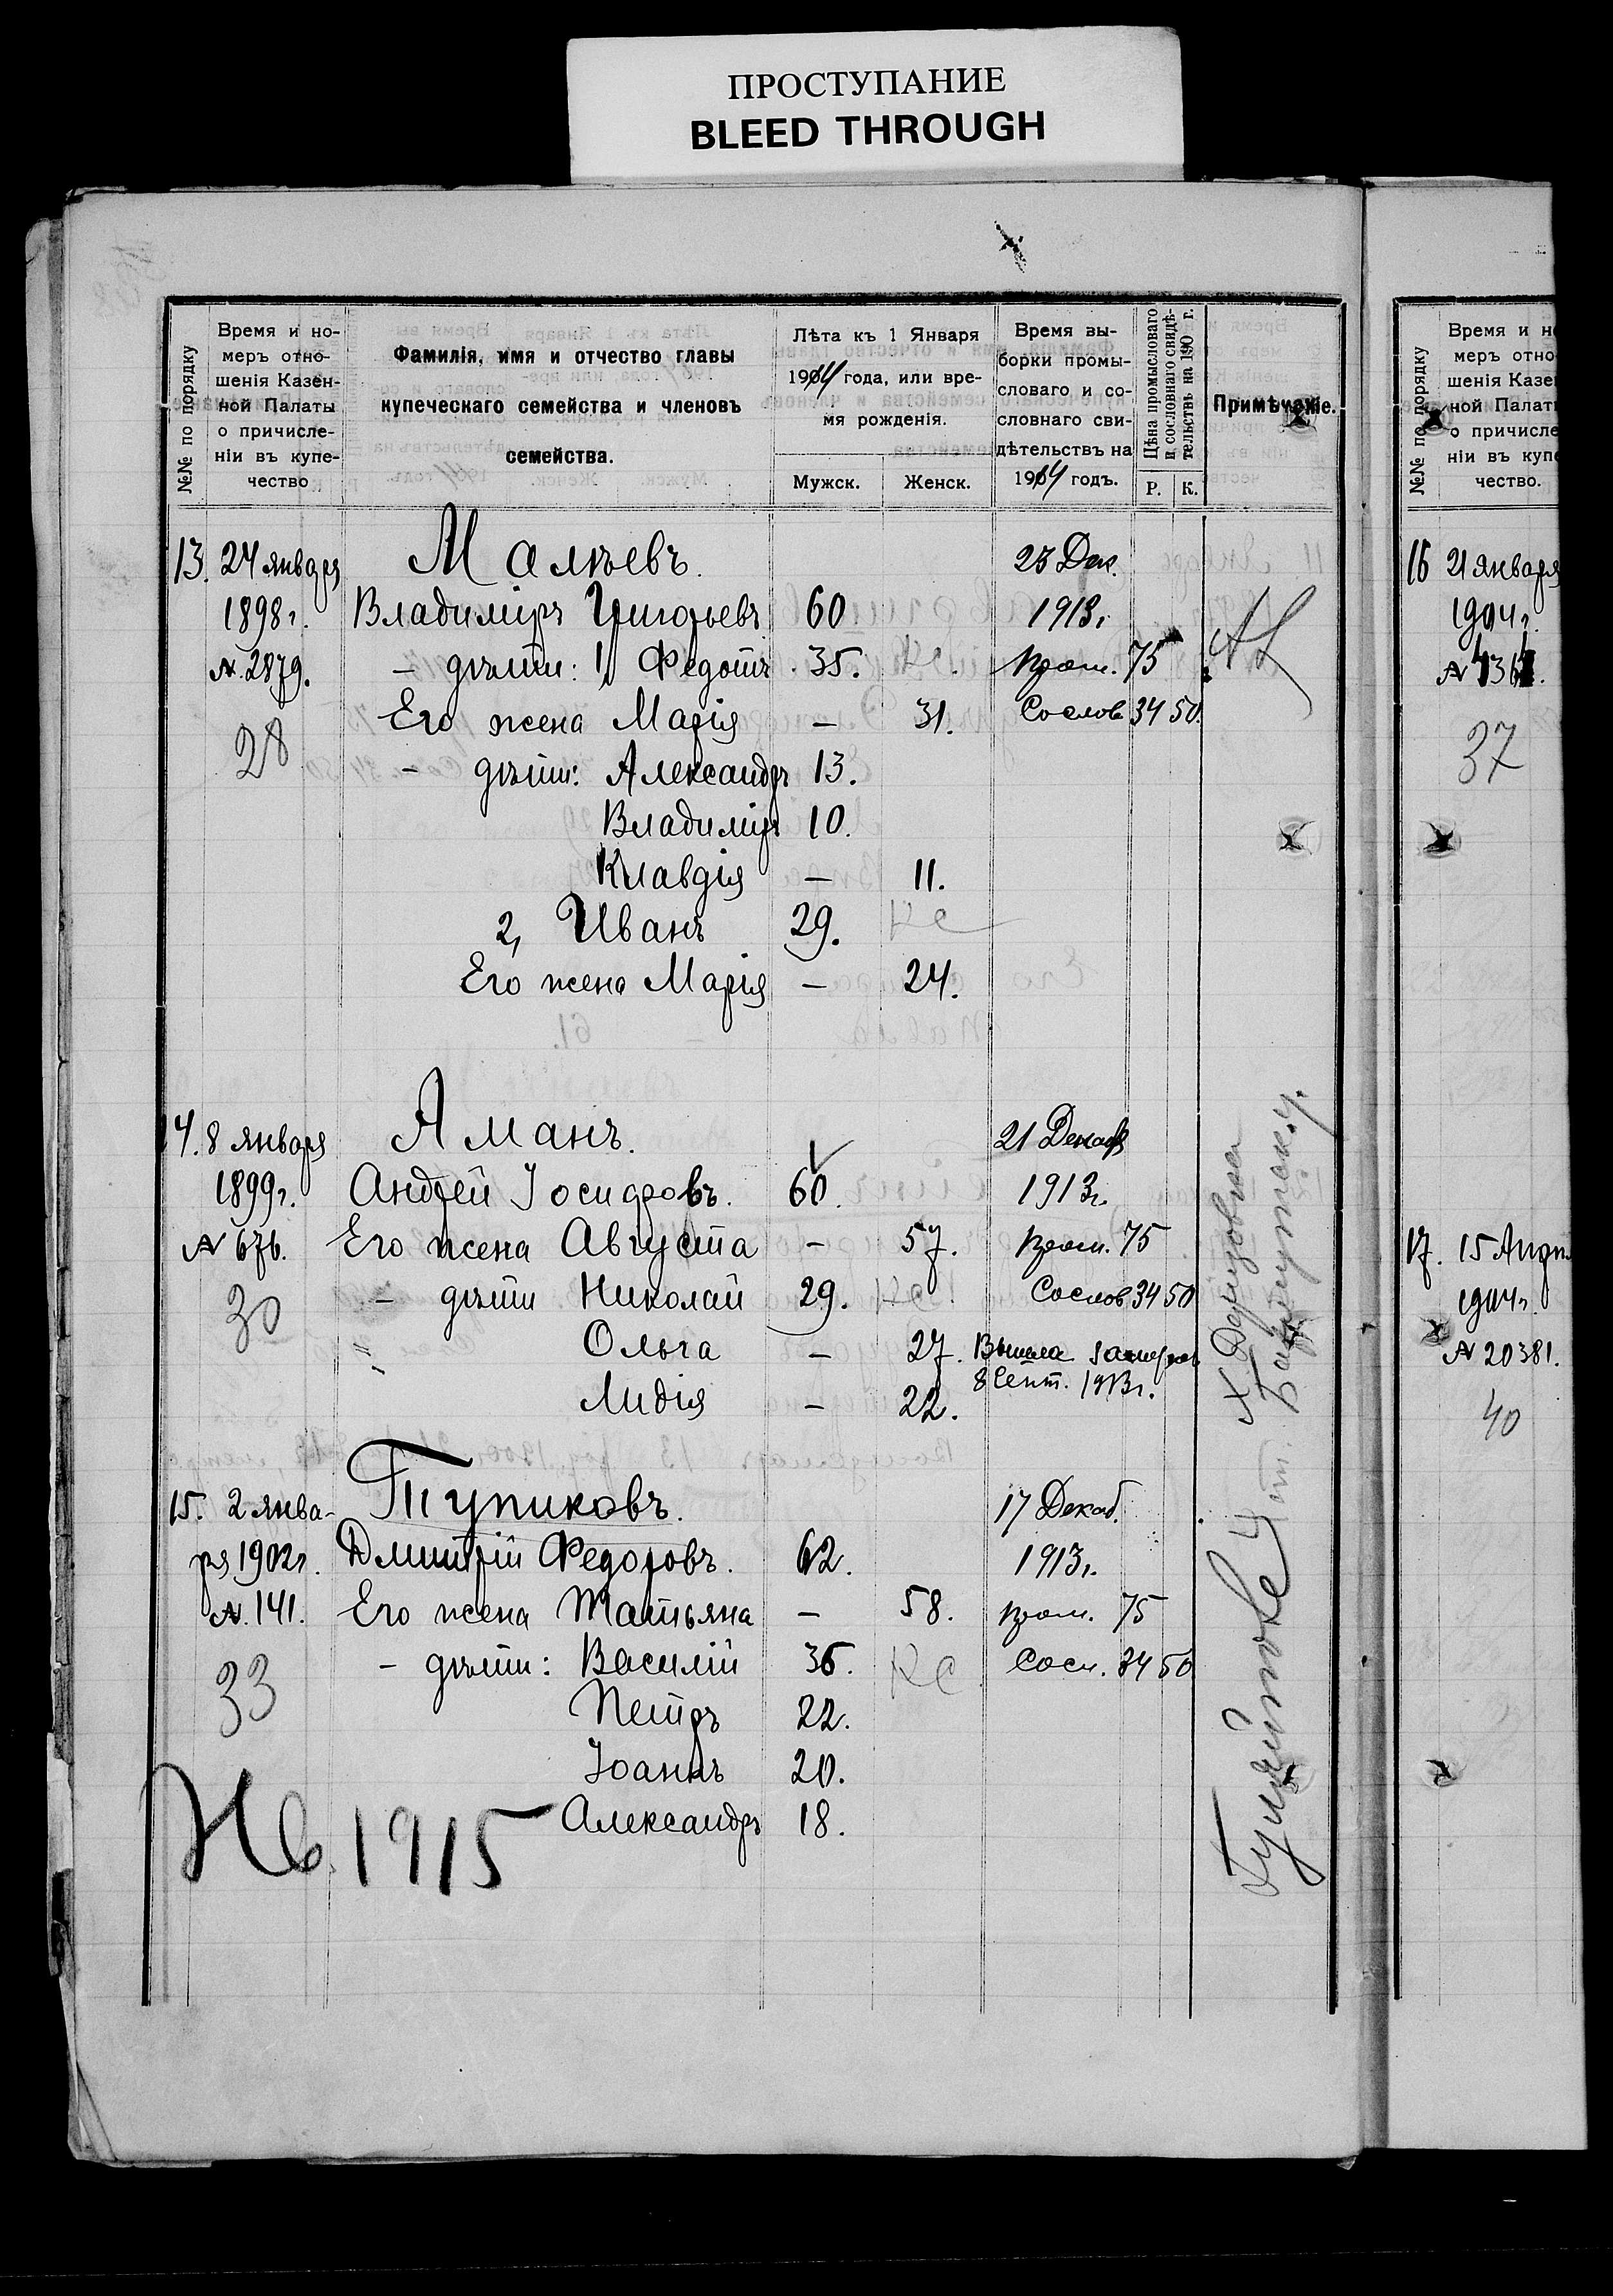 ПРОСТУПАНИЕ
BLEED THROUGH
№№ по порядку
Время и но-
меръ отно-
шенія Казен-
ной Палаты
о причисле-
ніи въ купе-
чество
Фамилія, имя и отчество главы
купеческаго семейства и членовъ
семейства.
Лѣта къ 1 Января
1914 года, или вре-
мя рожденія.
Мужск. Женск.
Время вы-
борки промы-
словаго и со-
словнаго сви-
дѣтельствъ на
1914 годъ.
Цѣна промысловаго
и сословнаго свидѣ-
тельствъ на 190 г.
Р. К.
Примѣчаніе.
13. 24 января Малѣевъ. 23 Дек.
1898 г. Владиміръ Григорьевъ 60 1913 г.
№ 2879. – дѣти: 1, Федотъ 35. Кс. пром. 75
Его жена Марія – 31. Сослов 34 50.
28
– дѣти: Александръ 13.
Владиміръ 10.
Клавдія – 11.
2, Иванъ 29. Кс
Его жена Марія – 24.
14. 8 января Аманъ. 21 Декаб
1899 г. Андрей Іосифовъ. 60. 1913 г.
№ 676. Его жена Августа – 57. пром. 75
30
– дѣти Николай 29. Кс. Сослов 34 50
" Ольга – 27. Вышла замужъ
8 Сент. 1913 г.
Лидія – 22.
15. 2 янва- Тупиковъ. 17 Декаб.
ря 1902 г. Дмитрій Федоровъ. 62. 1913 г.
№ 141. Его жена Татьяна – 58. пром. 75
– дѣти: Василій 36. Кс Сосл. 34 50
33
Петръ 22.
Іоаннъ 20.
Александръ 18.
1915
№№ по порядку
Время и но
меръ отно-
шенія Казен
ной Палаты
о причисле
ніи въ купе
чество.
16 21 января
1904 г.
37
17. 15 Апрѣ
1904 г.
№ 20381.
40